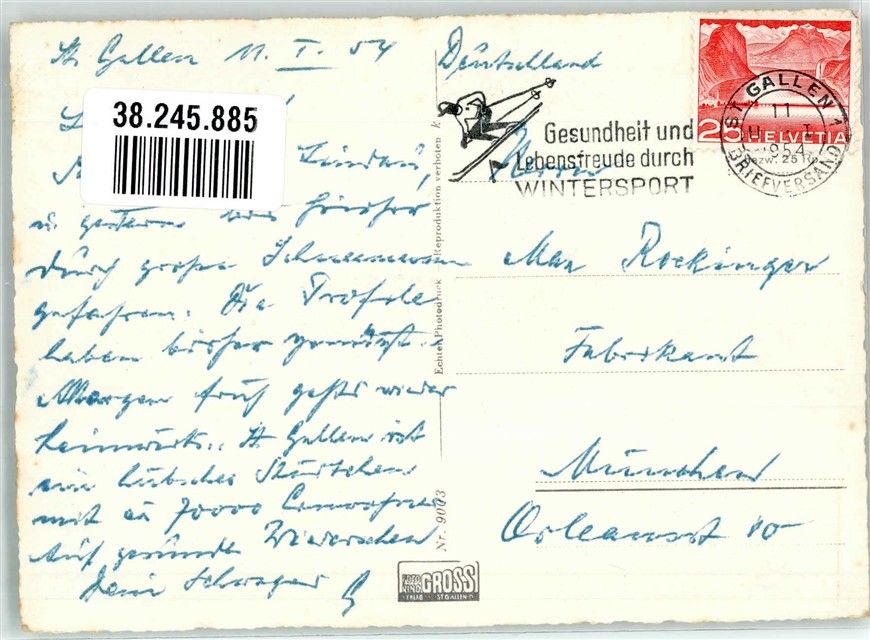 St Gallen 11. I. 54
38.245.885
Lindau,
u. gestern bis hierher
durch große Schneemassen
gefahren. Die
haben bisher genützt.
Morgen früh gehts wieder
heimwärts. St Gallen ist
ein hübsches Städtchen
mit ca 70000 Einwohner
Auf gesundes Wiedersehen
Dein Schwager
Echter Photodruck Reproduktion verboten
Nr. 9003
Deutschland
Gesundheit und
Lebensfreude durch
WINTERSPORT
25 HELVETIA
ST. GALLEN 1
11. I.
1954
BRIEFVERSAND
Herrn
Max Rockinger
Fabrikant
München
Orleansstr 10
GROSS
ST GALLEN